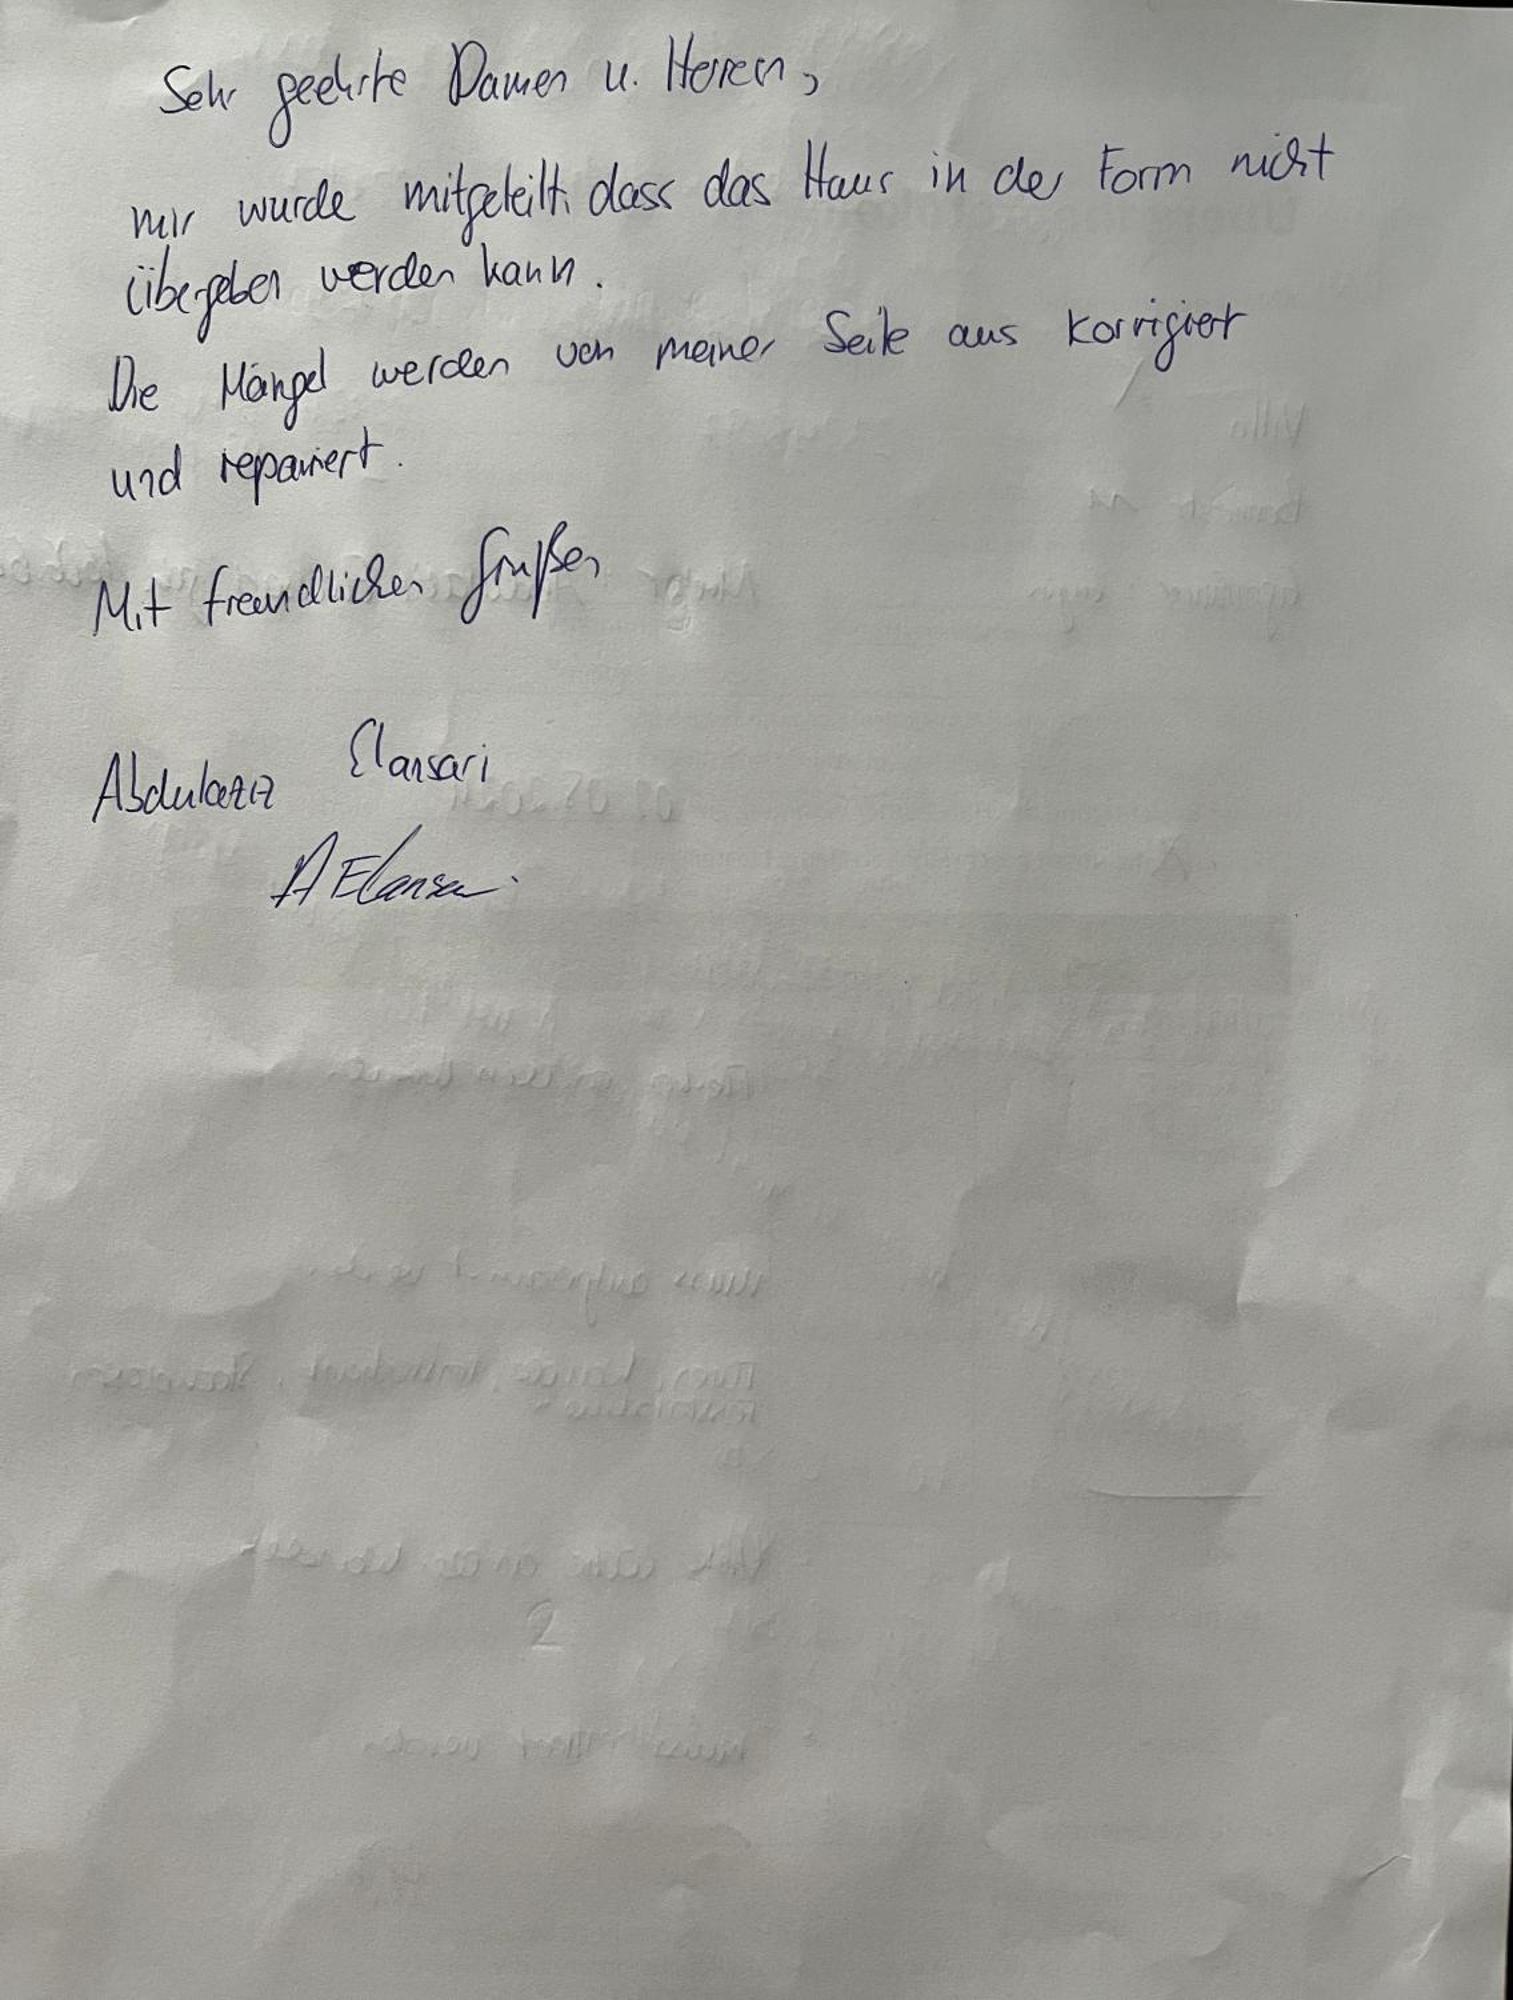 Sehr geehrte Damen u. Herren,
mir wurde mitgeteilt, dass das Haus in der Form nicht
übergeben werden kann.
Die Mängel werden von meiner Seite aus korrigiert
und repariert.
Mit freundlichen Grüßen
Abdulaziz Elansari
A Elansari